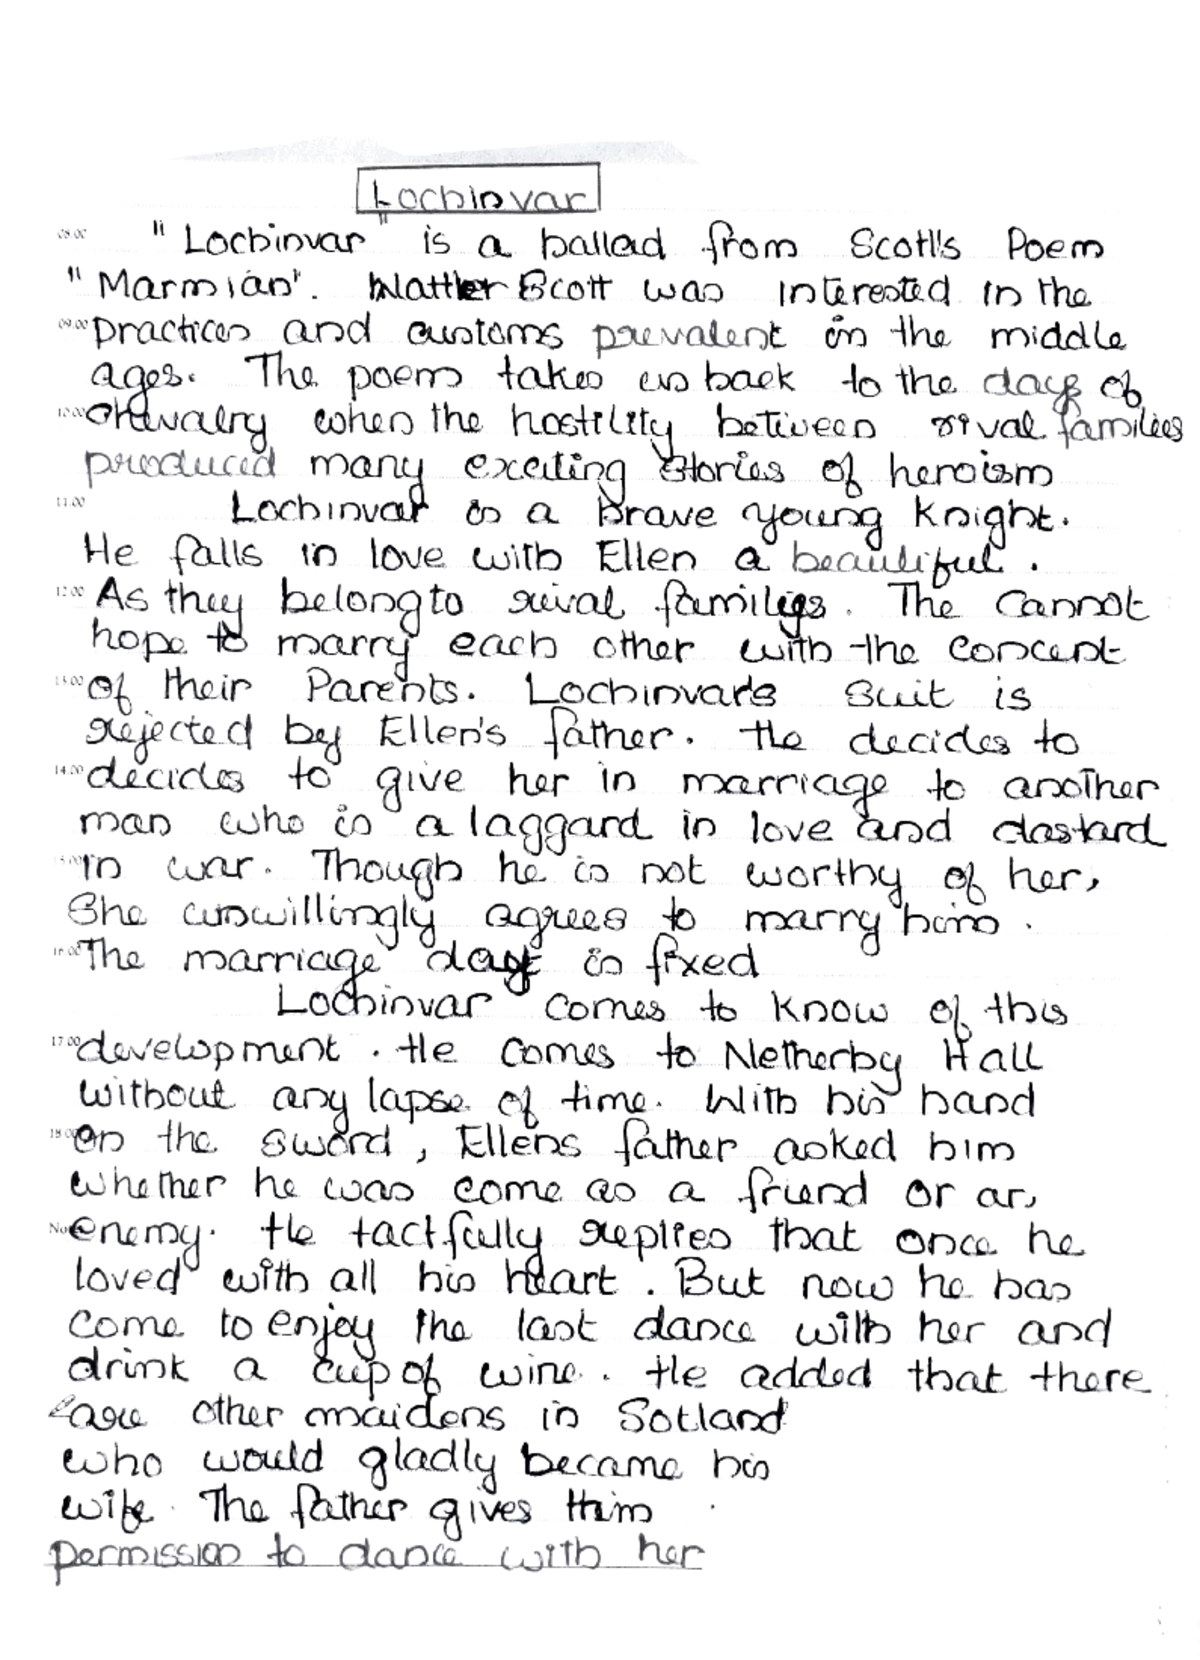 Lochinvar
08.00 "Lochinvar" is a ballad from Scott's Poem
"Marmian". Wattler Scott was interested in the
09.00 practices and customs prevalent in the middle
ages. The poem takes us back to the days of
10.00 chivalry when the hostility between rival families
produced many exciting stories of heroism
11.00 Lochinvar is a brave young Knight.
He falls in love with Ellen a beautiful.
12.00 As they belong to rival families. The cannot
hope to marry each other with the concent
13.00 of their Parents. Lochinvar's suit is
rejected by Ellen's father. He decides to
14.00 decides to give her in marriage to another
man who is a laggard in love and dastard
15.00 in war. Though he is not worthy of her,
She unwillingly agrees to marry him.
16.00 The marriage day is fixed
Lochinvar comes to know of this
17.00 development. He comes to Netherby Hall
without any lapse of time. With his hand
18.00 on the sword, Ellens father asked him
whether he was come as a friend or an
enemy. He tactfully replies that once he
loved with all his heart. But now he has
come to enjoy the last dance with her and
drink a cup of wine. He added that there
are other maidens in Sotland
who would gladly became his
wife. The father gives him
permission to dance with her